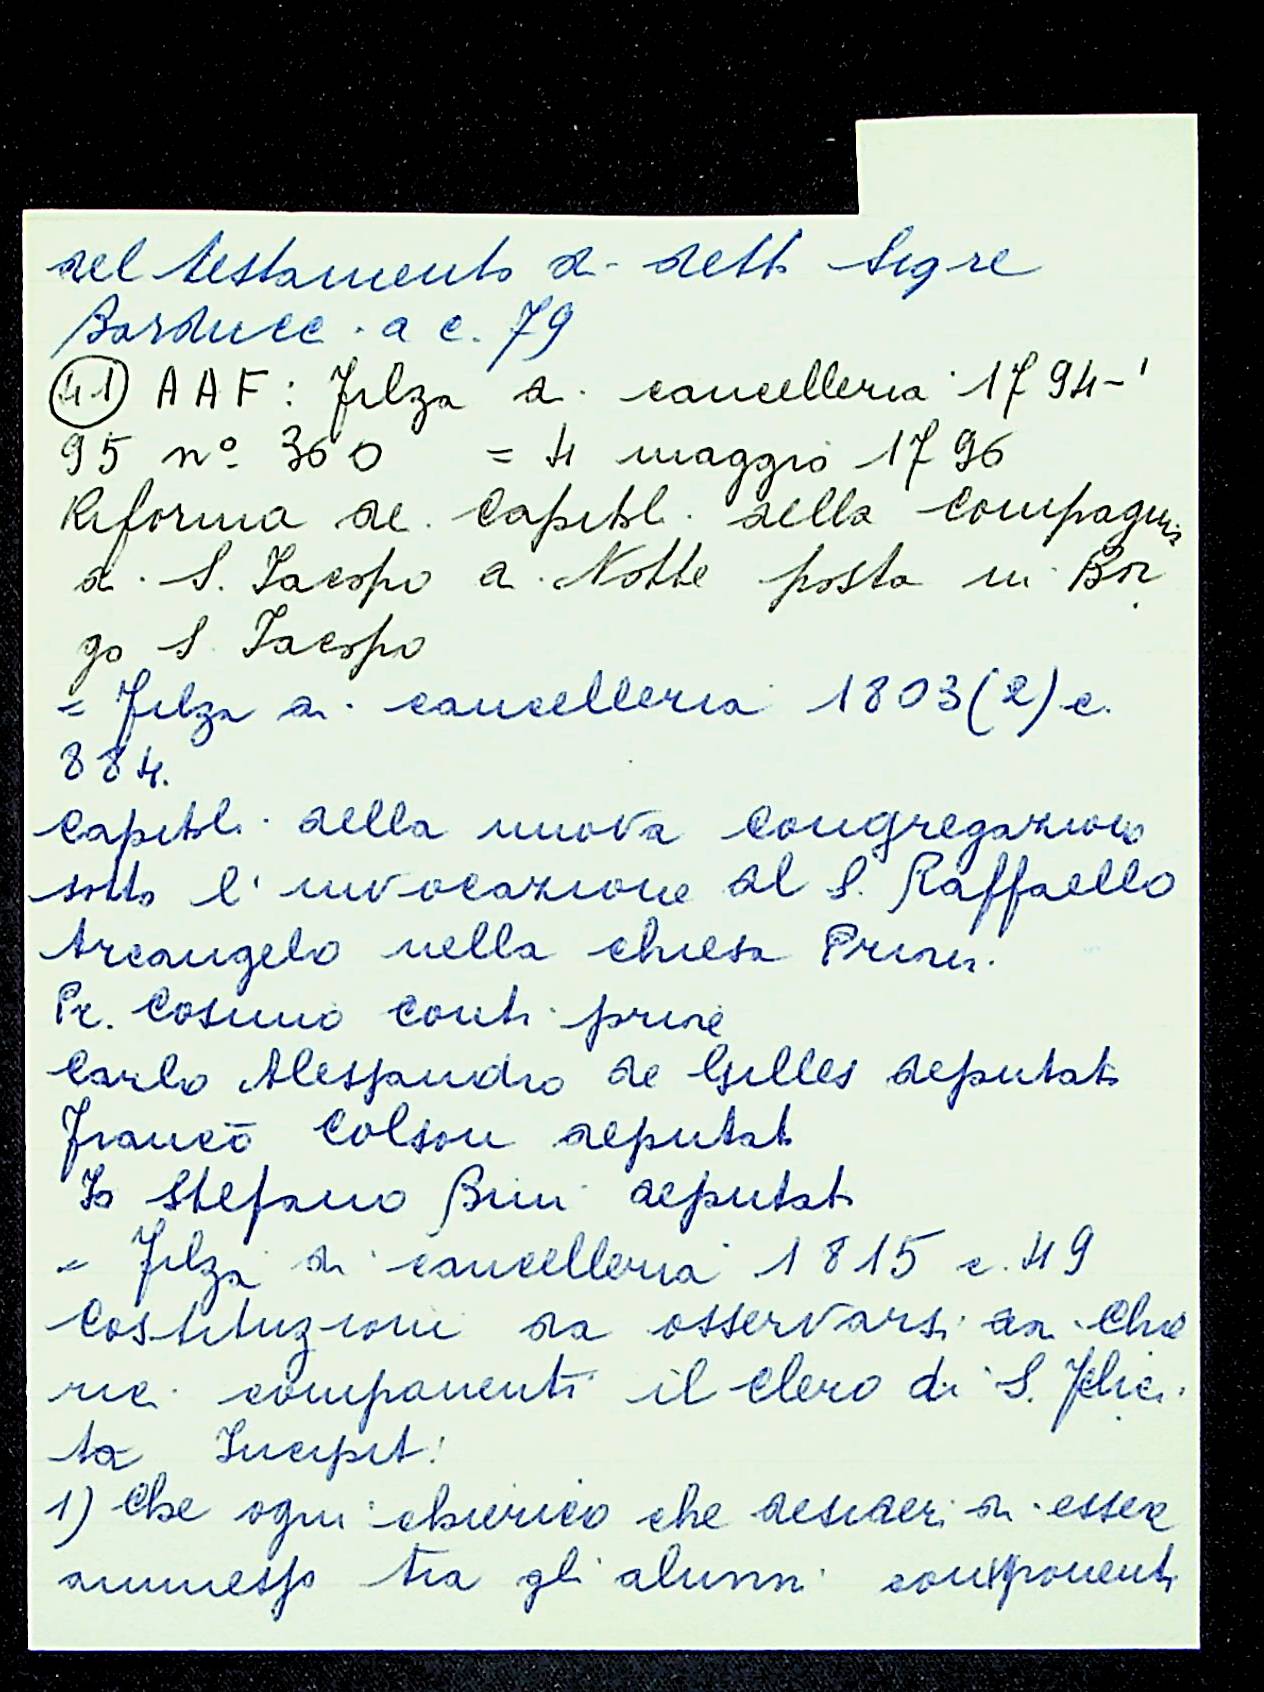 del testamento di detto Sigre
Barducci a c. 79
(41) AAF: Filza di cancelleria 1794-'
95 nº 360 = 4 maggio 1796
Riforma dei Capitoli della Compagnia
di S. Jacopo a Notte posta in Bor
go S Jacopo
= Filza di cancelleria 1803(2) c.
884.
Capitoli della nuova Congregazione
sotto l'invocazione del S. Raffaello
Arcangelo nella chiesa
Pr. Cosimo Conti priore
Carlo Alessandro de Gilles deputato
Francō Colson deputato
Io Stefano Bini deputato
= Filza di cancelleria 1815 c. 49
Costituzioni da osservarsi dai Chie
rici componenti il clero di S. Felici
ta Incipit:
1) Che ogni chierico che desideri di essere
ammesso tra gli alunni componenti